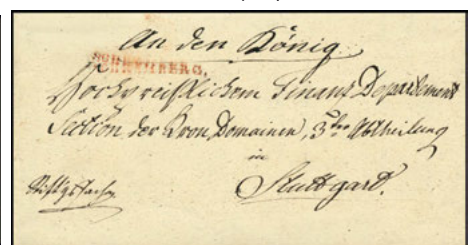 An den König.
SCHRAMBERG.
Hochpreißlichem Finanz Departement
Section der Kron Domainen, 3te Abtheilung
in
Stuttgard.